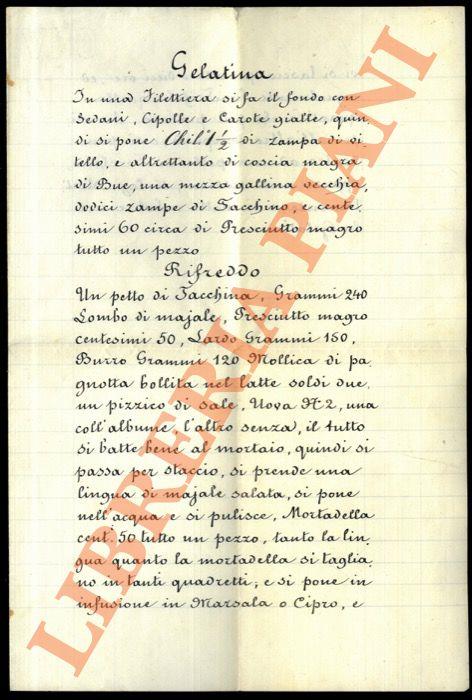 Gelatina
In una Filettiera si fa il fondo con
Sedani, Cipolle e Carote gialle, quin,
di si pone Chil. 1 1/2 di zampa di vi,
tello, e altrettanto di coscia magra
di Bue, una mezza gallina vecchia,
dodici zampe di Tacchino, e cente,
simi 60 circa di Presciutto magro
tutto un pezzo
Rifreddo
Un petto di Tacchina, Grammi 240
Lombo di majale, Presciutto magro
centesimi 50, Lardo Grammi 150,
Burro Grammi 120 Mollica di pa,
gnotta bollita nel latte soldi due,
un pizzico di sale, Uova N° 2, una
coll'albume, l'altro senza, il tutto
si batte bene al mortaio, quindi si
passa per staccio, si prende una
lingua di majale salata, si pone
nell'acqua e si pulisce, Mortadella
cent. 50 tutto un pezzo, tanto la lin,
gua quanto la mortadella si taglia,
no in tanti quadretti, e si pone in
infusione in Marsala o Cipro, e
LIBRERIA PIANI